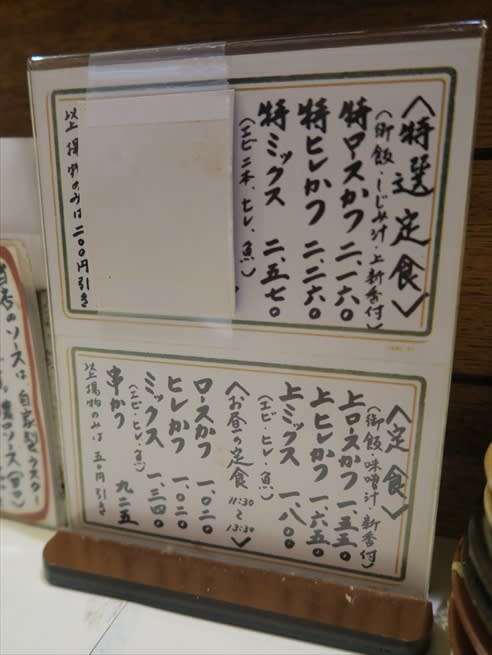 〈特選定食〉
（御飯・しじみ汁・上新香付）
特ロースかつ 二、一六〇
特ヒレかつ 二、二六〇
特ミックス 二、五七〇
（エビ二本、ヒレ、魚）
以上揚物のみは二〇〇円引き
〈定食〉
（御飯・味噌汁・新香付）
上ロースかつ 一、五五〇
上ヒレかつ 一、六五〇
上ミックス 一、八〇〇
（エビ・ヒレ・魚）
〈お昼の定食 11:30〜13:30〉
ロースかつ 一、〇二〇
ヒレかつ 一、〇二〇
ミックス 一、三四〇
（エビ・ヒレ・魚）
串かつ 九二五
以上揚物のみは 五〇円引き
当店のソースは自家製ウスター